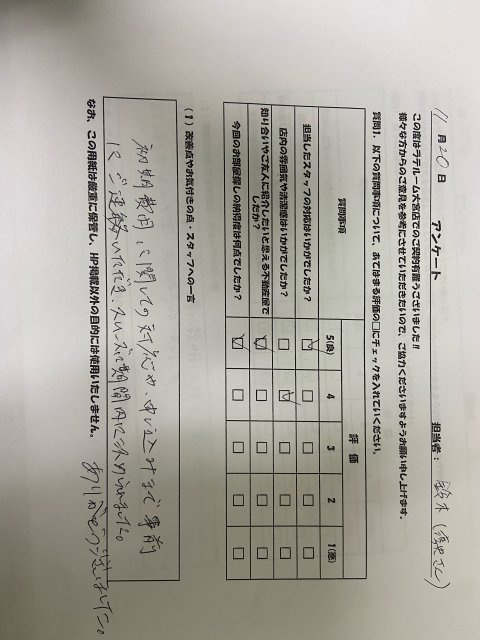 11月20日 アンケート 担当者： 鈴木（淳史さん）
この度はラテルーム大宮店でのご契約有難うございました!!
様々な方からのご意見を参考にさせていただきたいので、ご協力くださいますようお願い申し上げます。
質問1. 以下の質問事項について、あてはまる評価の□にチェックを入れてください。
質問事項 評 価
5(良) 4 3 2 1(悪)
担当したスタッフの対応はいかがでしたか？ ☑ □ □ □ □
店内の雰囲気や清潔感はいかがでしたか？ □ ☑ □ □ □
知り合いやご友人に紹介したいと思える不動産屋で
したか？ ☑ □ □ □ □
今回のお部屋探しの納得度は何点でしたか？ ☑ □ □ □ □
（1）改善点やお気付きの点・スタッフへの一言
初期費用に関しての対応や、申し込みまで事前
にご連絡いただき、スムーズに期間内に決められました。
ありがとうございました。
なお、この用紙は厳重に保管し、HP掲載以外の目的には使用いたしません。